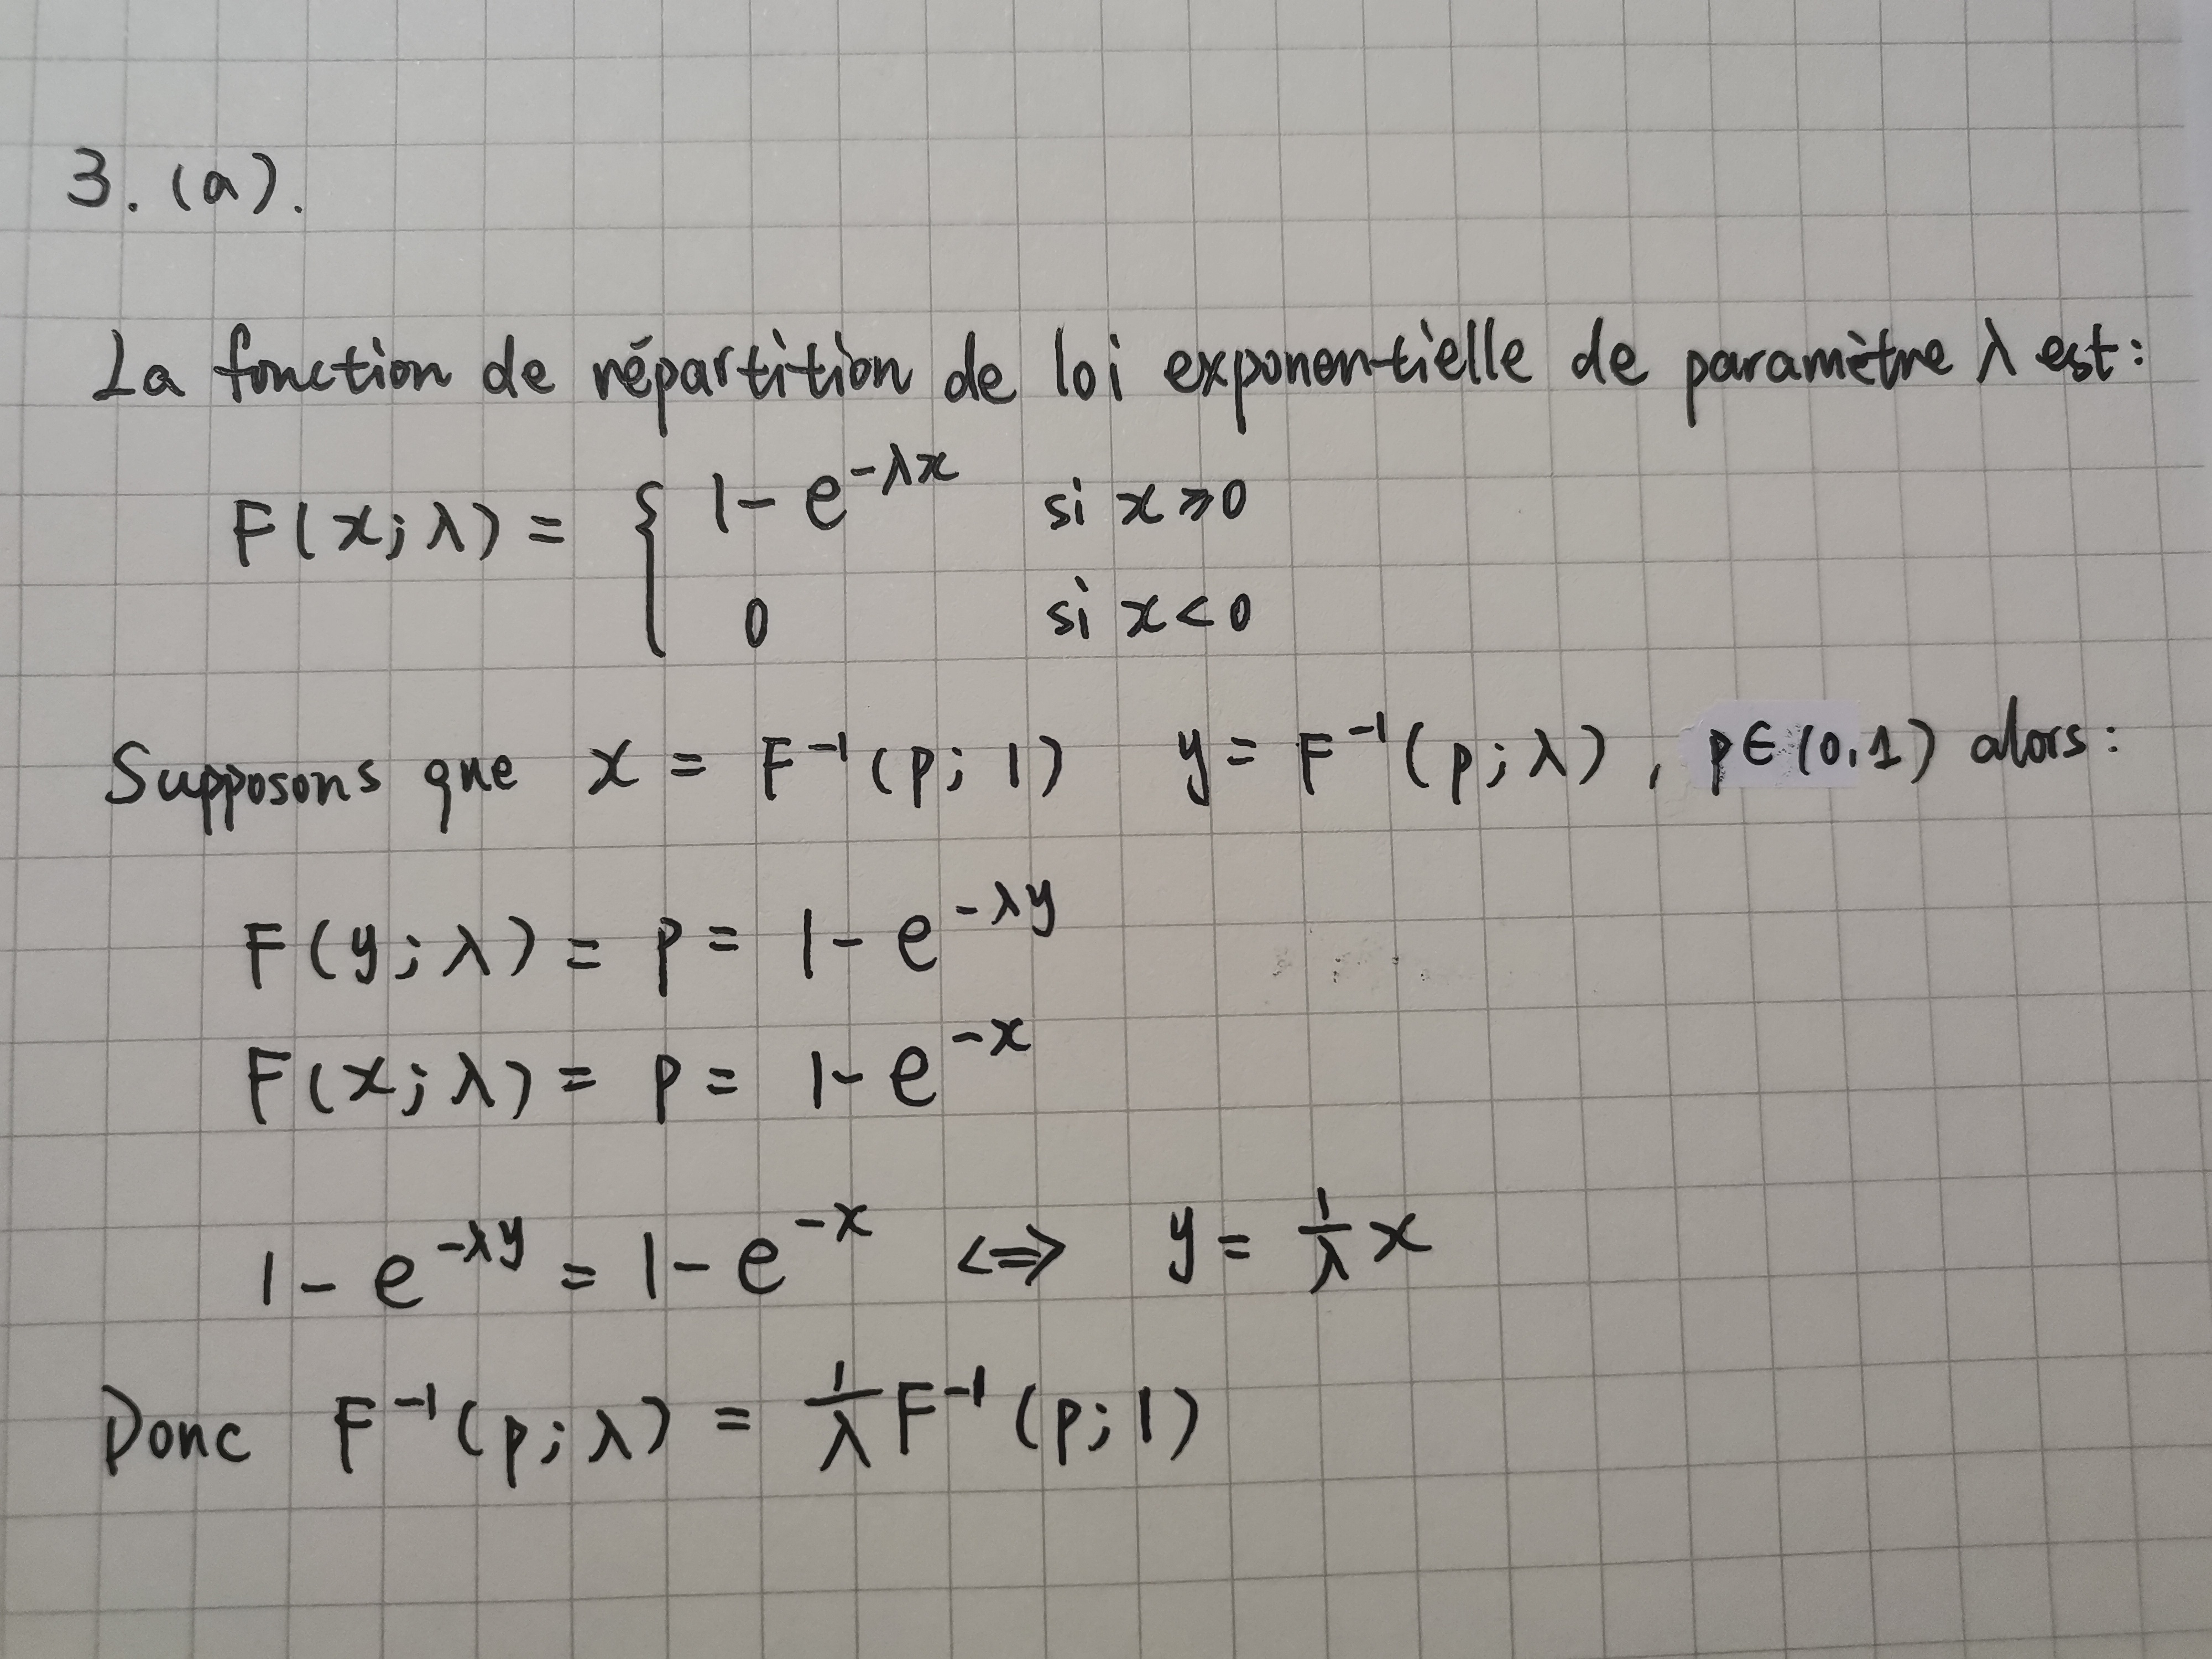 3. (a).
La fonction de répartition de loi exponentielle de paramètre λ est:
F(x; λ) = { 1 - e^{-λx} si x ⩾ 0
0 si x < 0
Supposons que x = F^{-1}(p; 1) y = F^{-1}(p; λ), p ∈ (0,1) alors:
F(y; λ) = p = 1 - e^{-λy}
F(x; λ) = p = 1 - e^{-x}
1 - e^{-λy} = 1 - e^{-x} <=> y = \frac{1}{λ} x
Donc F^{-1}(p; λ) = \frac{1}{λ} F^{-1}(p; 1)